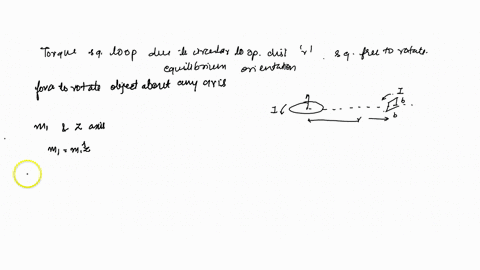 Torque sq. loop due to circular loop. dist 'r'. sq. free to rotate.
equilibrium orientation
force to rotate object about any axis
I
I
b
b
r
m₁ & z axis
m₁ = m₁ẑ